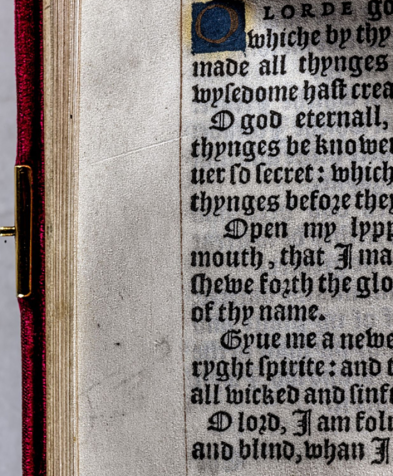 O LORDE go
whiche by thy
made all thynges
wysedome hast crea
O god eternall,
thynges be knowen
uer so secret: which
thynges before they
Open my lypp
mouth, that I ma
shewe forth the glo
of thy name.
Gyue me a newe
ryght spirite: and t
all wicked and sinf
O lord, I am foli
and blind, whan I